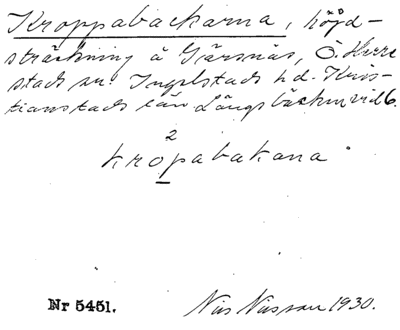 Kroppabackarna, höjd-
sträckning å Gärsnäs, Ö. Herre
stads sn. Ingelstads hd. Kris-
tianstads län Längs bäcken vid 6.
2
kropabakana
Nr 5451. Nils Nilsson 1930.